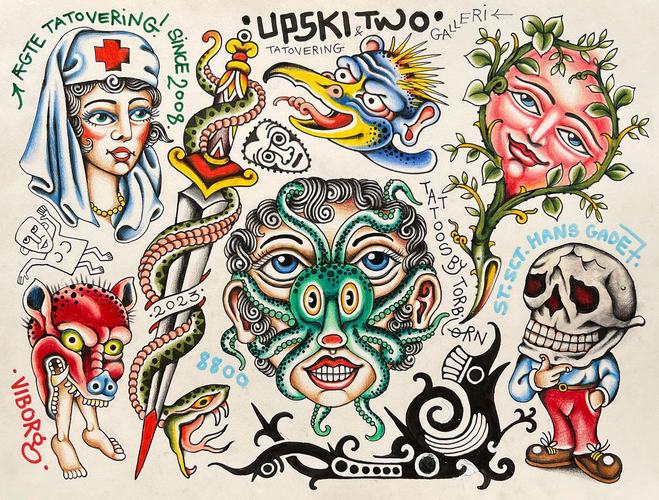 ÆGTE TATOVERING!
SINCE 2008
UPSKI TWO
TATOVERING & GALLERI
TATTOO BY TORBJØRN
ST. SCT. HANS GADE 7.
2023
8800
VIBORG